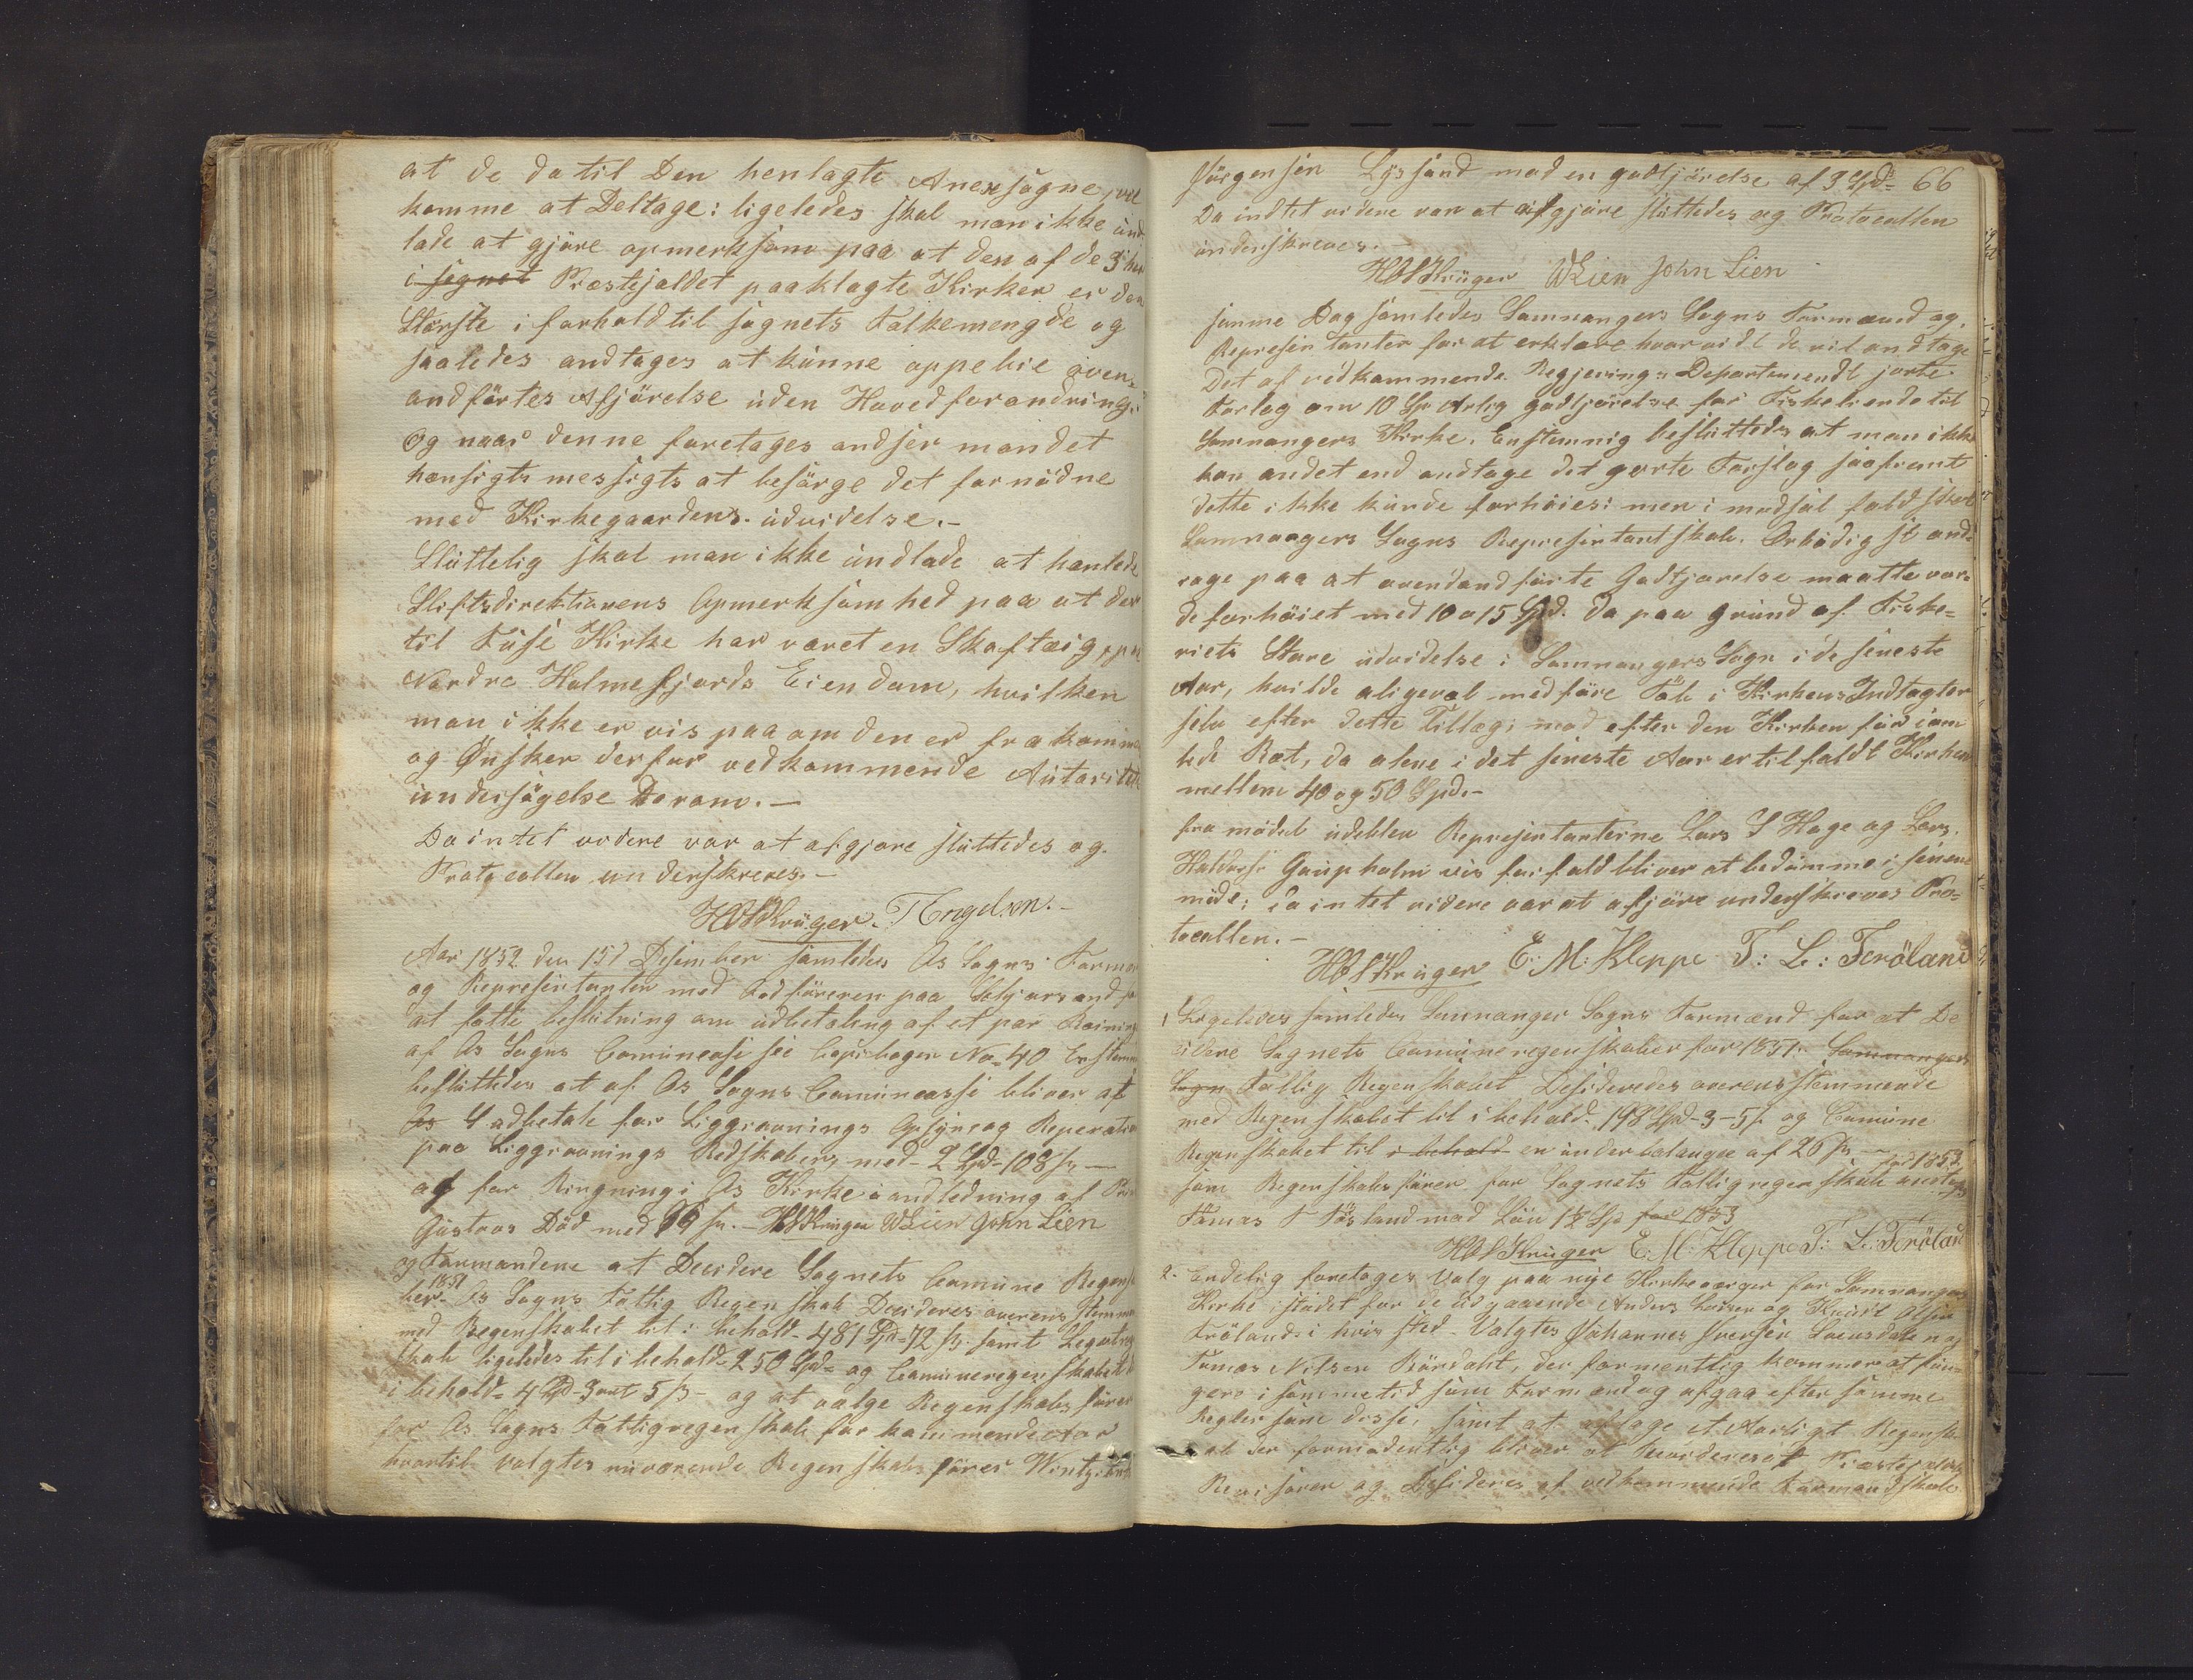 at de da til Den henlagte Anexsogne vil
komme at Deltage: ligeledes skal man ikke und
lade at gjöre opmerksom paa at den af de 3 her
i sognet Præstejaldet paaklagte Kirker er den
Störste i forhold til sognets Folkemengde og
saaledes andtages at kunne oppebie oven
andförtes Afjörelse uden Hovedforandring.
Og naar denne foretages andser man det
hensigts messigts at besörge det fornödne
med Kirkegaardens udvidelse.-
Sluttelig skal man ikke undlade at henlede
Stiftsdirektionens Opmerksomhed paa at der
til Fuse Kirke har været en Skaftæig paa
Nordre Holmefjords Eiendom, hvilken
man ikke er vis paa om den er frakommen
og Ønsker derfor vedkommende Autoritets
undersögelse Derom.-
Da intet videre var at afgjöre sluttedes og
Protocollen underskreves.-
HOSKrüger. T Engelsen.-
Aar 1852 den 15d Desember samledes Os Sogns Formænd
og Representanter med Fodföreren paa Schjorsand for
at fatte beslutning om udbetaling af et par Rainin
af Os Sogns Comuncasse see Copibogen No 40 Enstemmig
besluttedes at af Os Sogns Comuncasse bliver at
Os Udbetale for Liggravnings Opsynsog Reperation
paa Liggravnings Redskabers med- 2 Spd- 108 s-
og for Ringning i Os Kirke i andledning af Prin
Gustavs Död med 96 s.- HOSKrüger WLien John Lien
og Formændene at Decidere Sognets Comune Regnska
ber 1851 Os Sogns Fattig Regenskab Desideres overensstemmende
med Regenskabet til i behold- 481 Spd-72 s. samt Legatregn
skab ligeledes til i behold- 250 Spd- og Comuneregenskabet til
i behold- 4 Spd- 3 ort 5 s- og at valge Regenskabs förer
for Os Sogns Fattigregenskab for kommende Aar
hvortil valgtes nuværende Regenskabs förer
Jörgensen Lyssand mod en godtjörelse af 3 Spd- 66
Da indtet videre var at afgjöre sluttedes og Protocollen
underskreves.-
HOSKrüger WLien John Lien
samme Dag samledes Samnangers Sogns Formænd og
Representanter for at erklære hvorvidt de vil andtage
Det af vedkommende Regjerings Departementet jorte
Forlag om 10 Sp Arlig godtjörelse for Fisketiende til
Samnangers Kirke. Enstemmig besluttedes at man ikke
kan andet end andtage det gjorte Forslag saafremt
dette ikke kunde forhöies: men i modsat fald skul
Samnangers Sogns Representantskab Örbödigst and
rage paa at ovenandförte Godtjorelse maatte vor
de forhöiet med 10 a 15 Spd. da paa Grund af Fiske-
riets Store udvidelse i Samnangers Sogn i de seneste
Aar, hvilde aligeval medföre Tab i Kirkens Indtagter
selv efter dette Tillæg; mod efter den Kirken for om
tede Ret, da alene i det seneste Aar er tilfaldt Kirken
mellem 40 og 50 Spd.-
fra mödet udeblev Representanterne Lars S Hage og Lars
Haldorse Gaupholm vis forfald bliver at bedömme i senere
möde; da intet videre var at afjöre underskreves Pro-
tocollen.-
HOSKrüger E. M. Kleppe T: L: Tveröland
1, Ligeledes samledes Samnanger Sogns Formænd for at De
cidere Sognets Comuneregenskaber for 1851. Samnangers
Sogn Fattig Regenskabet Desideredes overensstemmende
med Regenskabet til i behold. 198 Spd-3-5 s og Comune
Regenskabet til i behold en underbalangse af 26 s-
som Regenskabsförer for Sognets Fattigregenskab antoges for 1853
Tomas T Tösland mod Lön 1½ Spd for 1853
HOSKrüger E. M. Kleppe T: L: Tveröland
2. Endelig foretages Valg paa nye Kirkeværger for Samnangers
Kirke istedet for de udgaaende Anders Larsen og Knudt Olsen
Tröland i hvis sted- Valgtes Johannes Iversen og
Tomas Nilsen Bördahl, der formentlig kommer at fun
gere i samme tid som Formænd og afgaa efter samme
Regler som disse, samt at aflage et Aarligt Regensk
ab der formodentlig bliver at Revideres af Præstejaldets
Revisoren og Desideres af vedkommende Formandskab